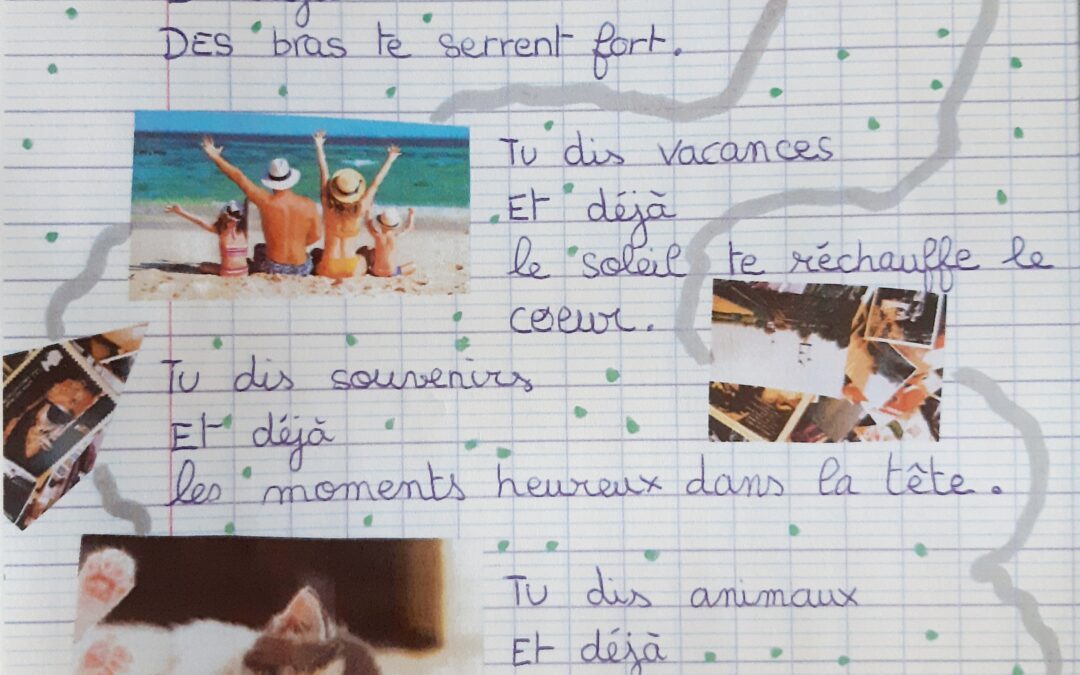 DES bras te serrent fort.
Tu dis vacances
Et déjà
le soleil te réchauffe le
coeur.
Tu dis souvenirs
Et déjà
les moments heureux dans la tête.
Tu dis animaux
Et déjà